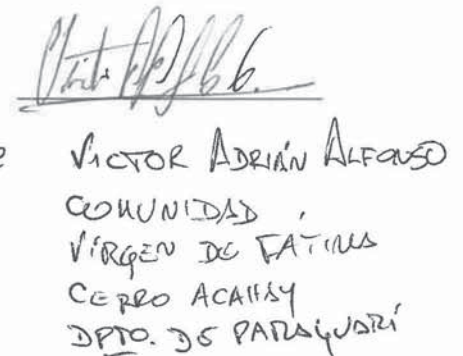 VICTOR ADRIÁN ALFONSO
COMUNIDAD
VÍRGEN DE FATIMA
CERRO ACAHAY
DPTO. DE PARAGUARÍ